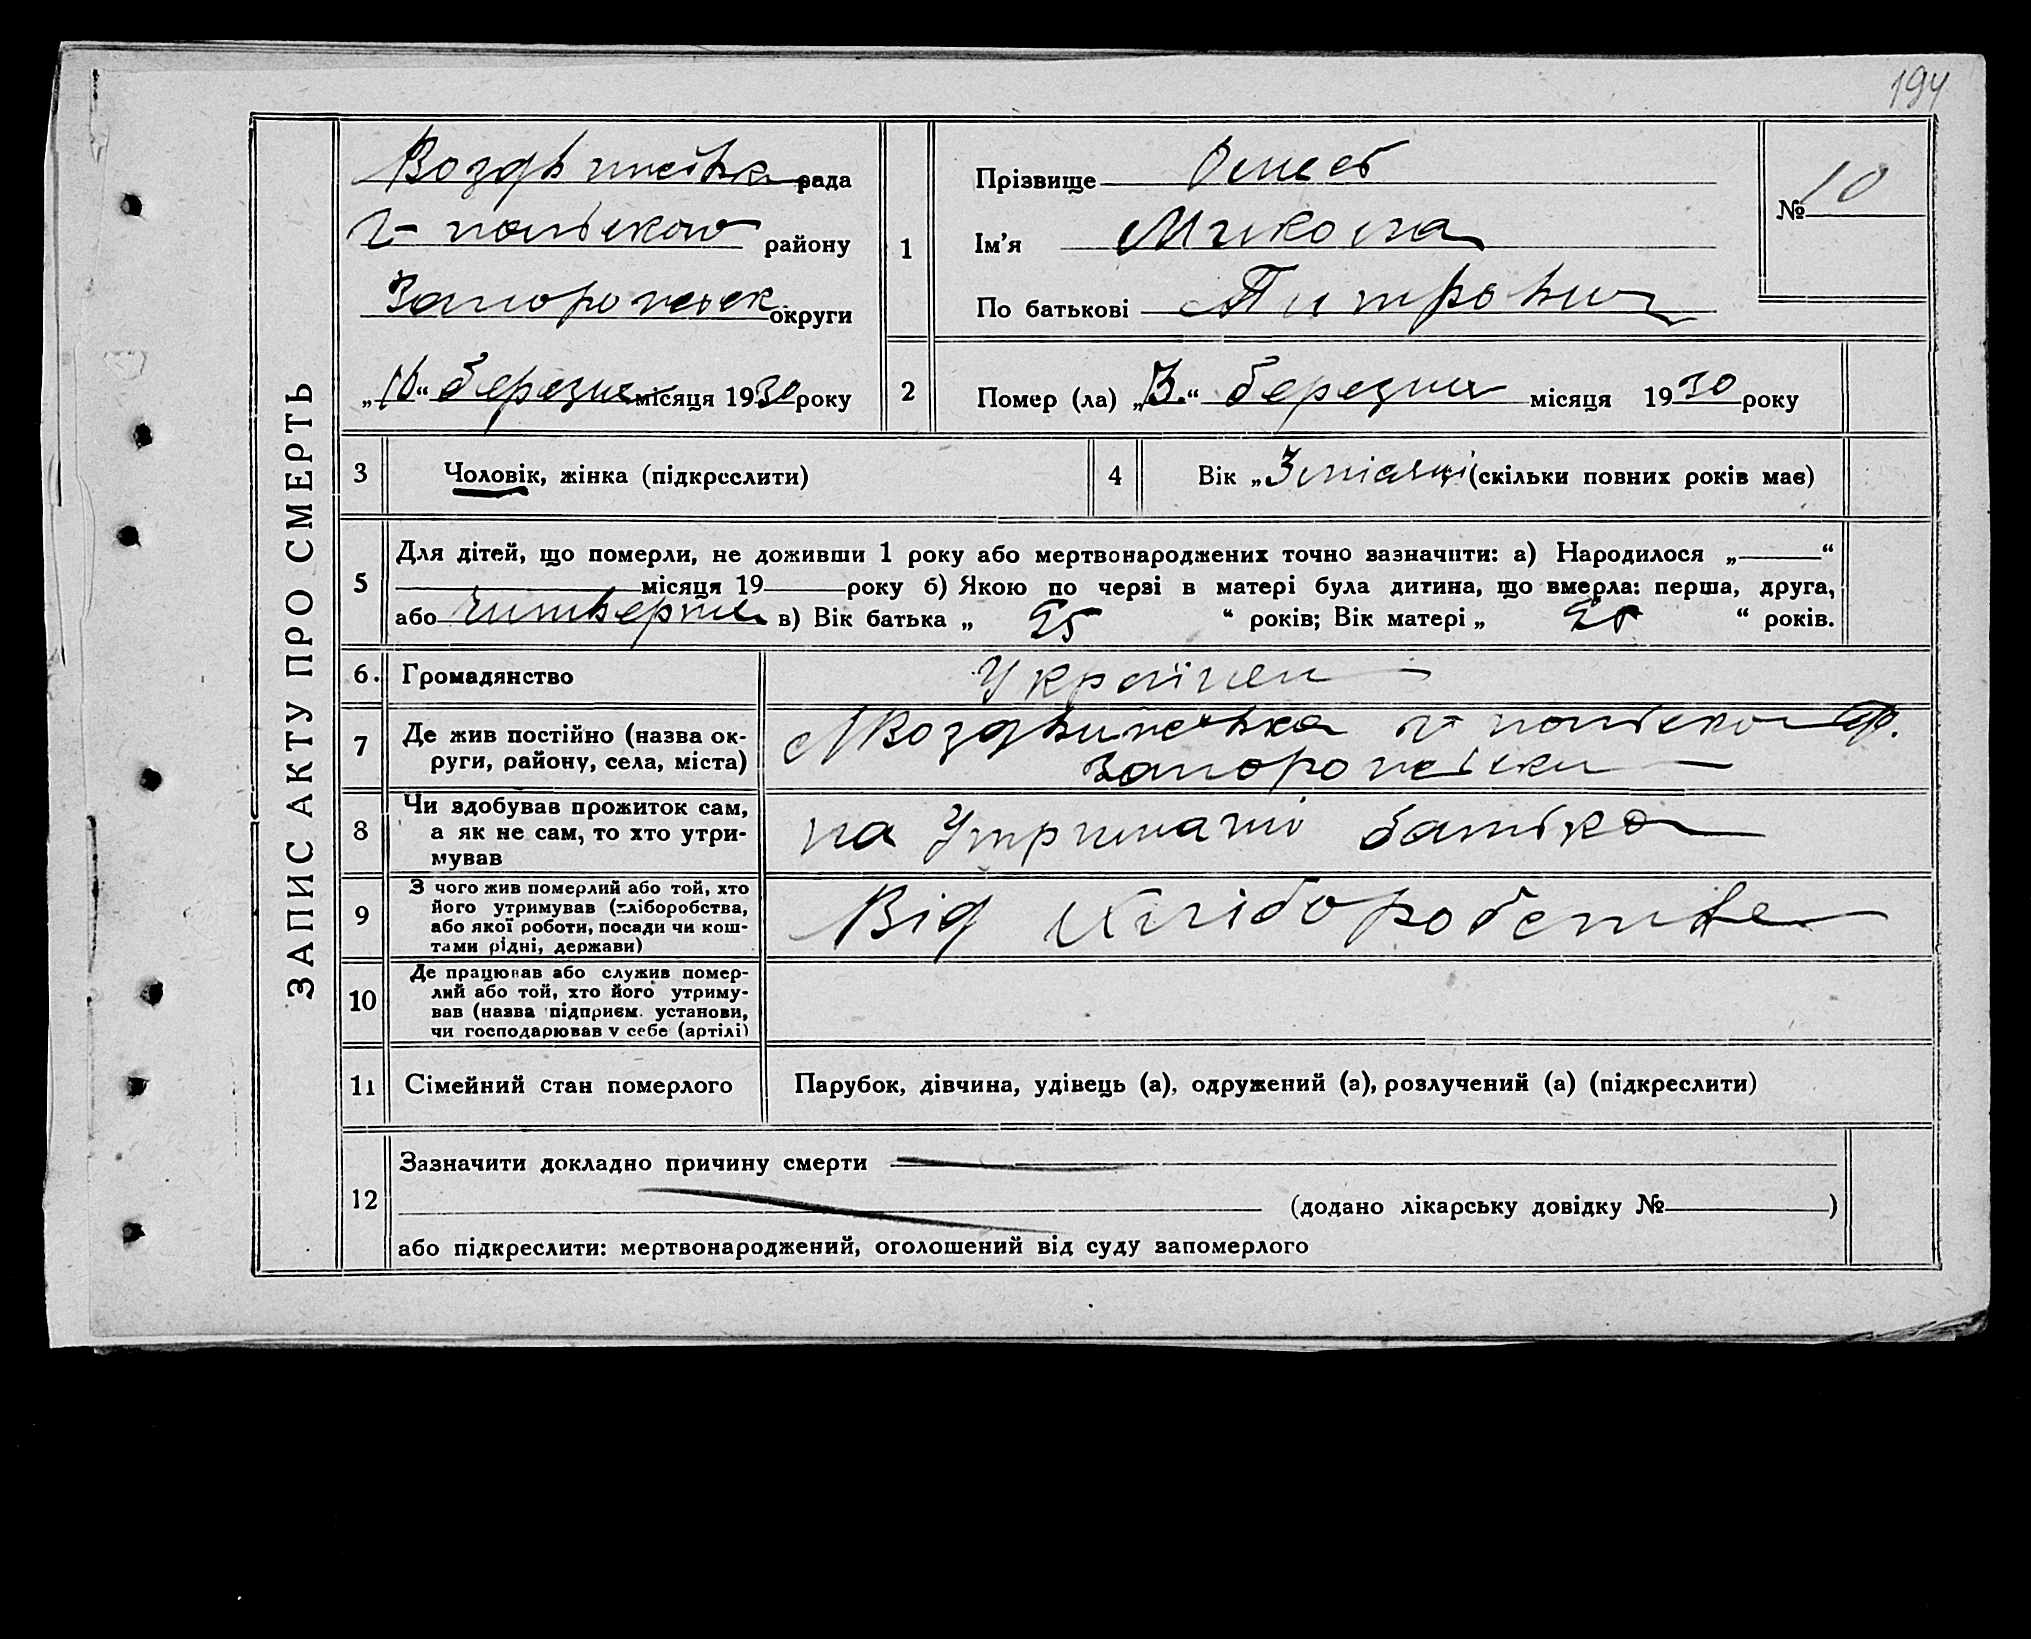 194
ЗАПИС АКТУ ПРО СМЕРТЬ
Воздвижівка рада
г-польского району
Запорожськ. округи
„16“ березня місяця 1930 року
1
Прізвище
Ім'я Микола
По батькові Питрович
№ 10
2
Помер (ла) „3.“ березня місяця 1930 року
3
Чоловік, жінка (підкреслити)
4
Вік „3 місяці (скільки повних років має)
5
Для дітей, що померли, не доживши 1 року або мертвонароджених точно зазначити: а) Народилося „ “
місяця 19 року б) Якою по черзі в матері була дитина, що вмерла: перша, друга,
або читверта в) Вік батька „ 25 “ років; Вік матері „ 25 “ років.
6. Громадянство
Українец
7
Де жив постійно (назва ок-
руги, району, села, міста)
Воздвижевка г-польского р.
Запорожськи
8
Чи здобував прожиток сам,
а як не сам, то хто утри-
мував
на Утриманні батька
9
З чого жив померлий або той, хто
його утримував (хліборобства,
або якої роботи, посади чи кош-
тами рідні, держави)
Від Хліборобства
10
Де працював або служив помер-
лий або той, хто його утриму-
вав (назва підприєм. установи,
чи господарював у себе (артілі)
11
Сімейний стан померлого
Парубок, дівчина, удівець (а), одружений (а), розлучений (а) (підкреслити)
12
Зазначити докладно причину смерти
(додано лікарську довідку № )
або підкреслити: мертвонароджений, оголошений від суду запомерлого